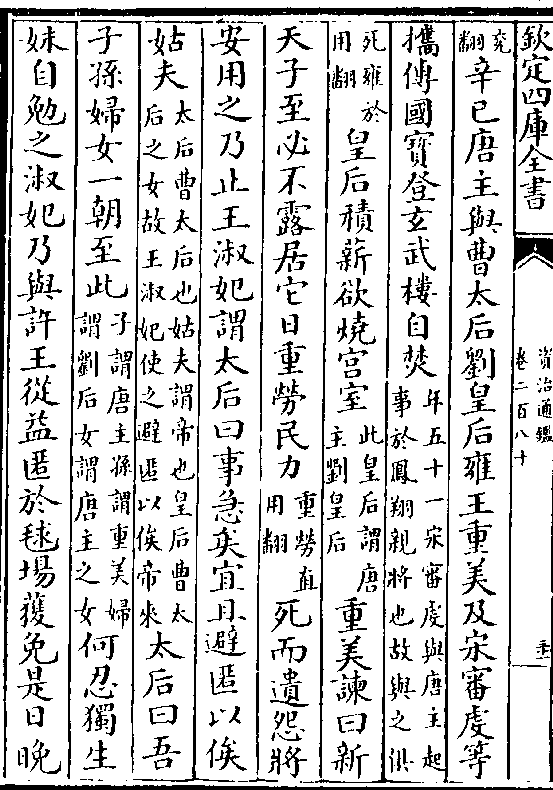 欽定四庫全書
資治通鑑
卷二百八十
兖翻辛巳唐主與曹太后劉皇后雍王重美及宋審虔等
攜傳國寳登玄武樓自焚年五十一宋審虔與唐主起事於鳳翔親將也故與之俱
死雍於用翻皇后積薪欲燒宫室此皇后謂唐主劉皇后重美諫曰新
天子至必不露居它日重勞民力重勞直用翻死而遺怨將
安用之乃止王淑妃謂太后曰事急矣宜且避匿以俟
姑夫太后曹太后也姑夫謂帝也皇后曹太后之女故王淑妃使之避匿以俟帝來太后曰吾
子孫婦女一朝至此子謂唐主孫謂重美婦謂劉后女謂唐主之女何忍獨生
妹自勉之淑妃乃與許王從益匿於毬場獲免是日晚